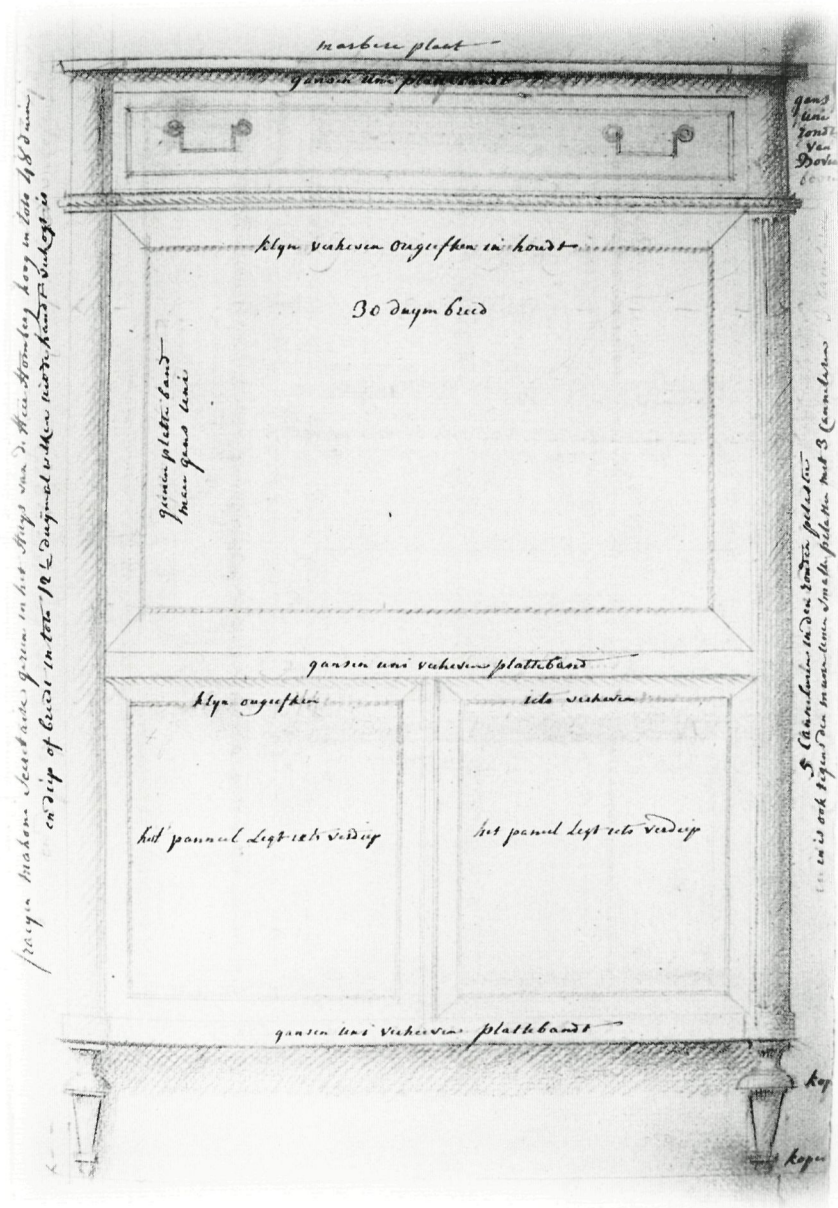 marbere plaat
gansen uni plattebandt
gans
uni
rondt
van
Boven
klyn verheven ongeefken in houdt
30 duym breed
geenen platte band
maer gans uni
gansen uni verheven platteband
klyn ongeefken
iets verheven
het panneel Legt iets verdiep
het paneel Legt iets verdiep
gansen uni verheeven plattebandt
fraeyen mahonie Secretaire gesien in het Huys van de Heer Homberg hoog in tots 48 duim
en diep of breede in tots 12 1/2 duym
5 Cannelueren in den ronden pilaster
en is ook tegens den muur eenen smalle pilaster met 3 Cannelueren
kop
koper